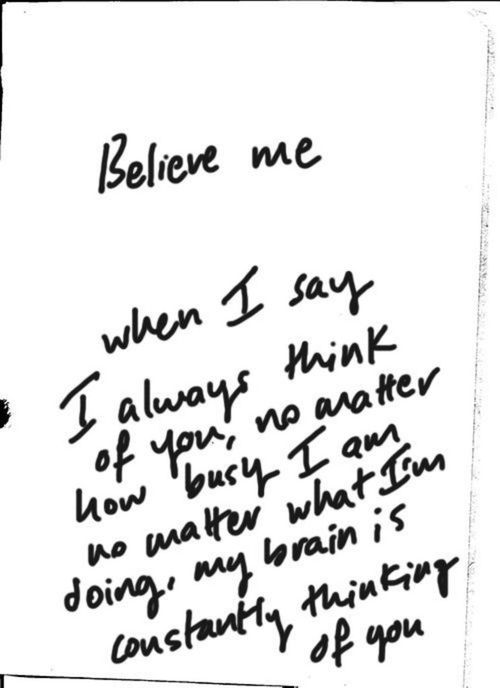 Believe me
when I say
I always think
of you, no matter
how busy I am
no matter what I'm
doing, my brain is
constantly thinking
of you